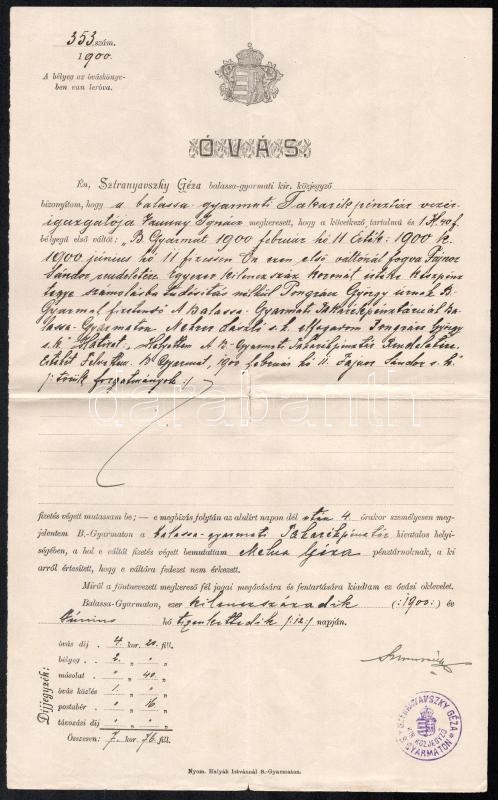 353. szám.
1900.
A bélyeg az óváskönyvben van leróva.
ÓVÁS.
Én, Sztranyavszky Géza balassa-gyarmati kir. közjegyző
bizonyítom, hogy a balassa-gyarmati Takarékpénztár vezér-
igazgatója Ignácz megkeresett, hogy a következő tartalmú és 1 K. 40 f.
bélyegű első váltót: „B. Gyarmat 1900 február hó 11. Érték: 1900 K.
1900. június hó 11 fizessen Ön ezen első váltónál fogva Pajor
Sándor rendeletére Egyezer kilenczszáz koronát értéke készpénz
tegye számolásba tudósítás nélkül Pongrácz György úrnak B.
Gyarmat fizetendő A Balassa-Gyarmati Takarékpénztárnál Ba-
lassa-Gyarmaton László s.k. elfogadom Pongrácz György
s.k. Hátirat, Helyettem A B-Gyarmati Takarékpénztár Rendeletére
Értékét Felvettem. B. Gyarmat, 1900 február hó 11. Pajor Sándor s.k.
fizetés végett mutassam be; — e megbízás folytán az alulirt napon dél után 4. órakor személyesen meg-
jelentem B.-Gyarmaton a balassa-gyarmati Takarékpénztár hivatalos helyi-
ségében, a hol e váltót fizetés végett bemutattam Géza pénztárnoknak, a ki
arról értesített, hogy e váltóra fedezet nem érkezett.
Miről a föntnevezett megkereső fél jogai megóvására és fentartására kiadtam ez óvási oklevelet.
Balassa-Gyarmaton, ezer kilenczszázadik (:1900:) év
Június hó tizenkettedik /:12:/ napján.
Díjjegyzék:
óvás díj 4. kor. 20. fill.
bélyeg 2. „ „
másolat „ 40. „
óvás közlés 1. „ „
postabér „ 16. „
távozási díj „ „
Összesen: 7. kor. 76. fill.
SZTRANYAVSZKY GÉZA KIR. KÖZJEGYZŐ B. GYARMATON
Nyom. Halyák Istvánnál B.-Gyarmaton.
darabanth